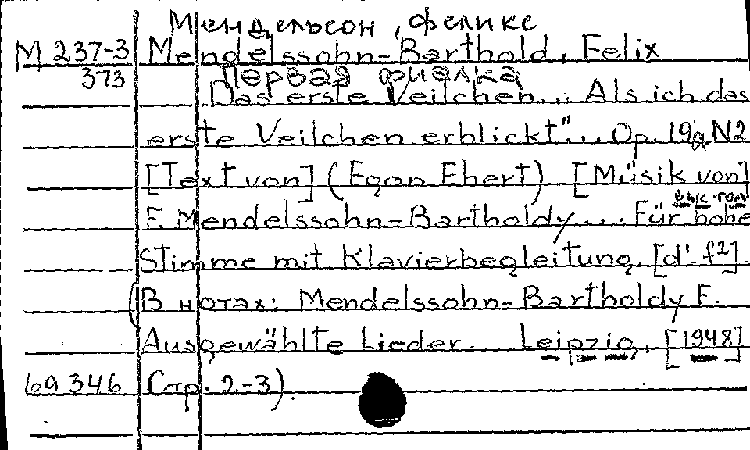 Мендельсон, Феликс
М 237-3 Mendelssohn-Barthold, Felix
373 Первая фиалка
Das erste Veilchen... Als ich das
erste Veilchen erblickt"... Op. 19a N2
[Text von] (Egon Ebert) [Müsik von]
выс. гол.
F. Mendelssohn-Bartholdy... Für hohe
Stimme mit Klavierbegleitung. [d' f2]
(В нотах: Mendelssohn-Bartholdy F.
Ausgewählte Lieder... Leipzig, [1948]
69 346 Стр. 2-3).